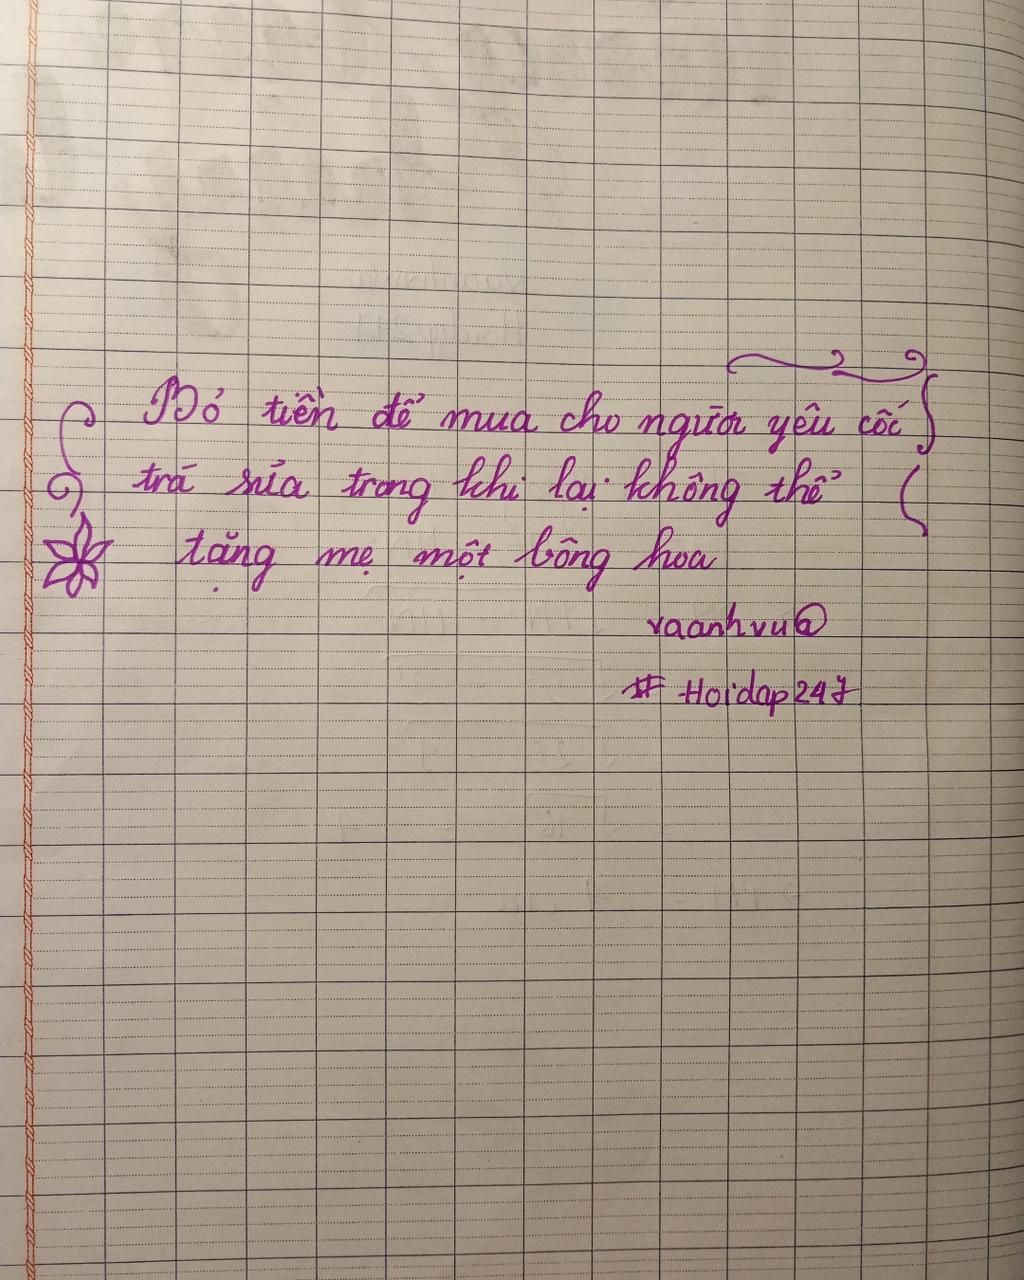 Bỏ tiền để mua cho người yêu cốc
trá sữa trong khi lại không thể
tặng mẹ một bông hoa
vaanhvu@
# Hoidap247